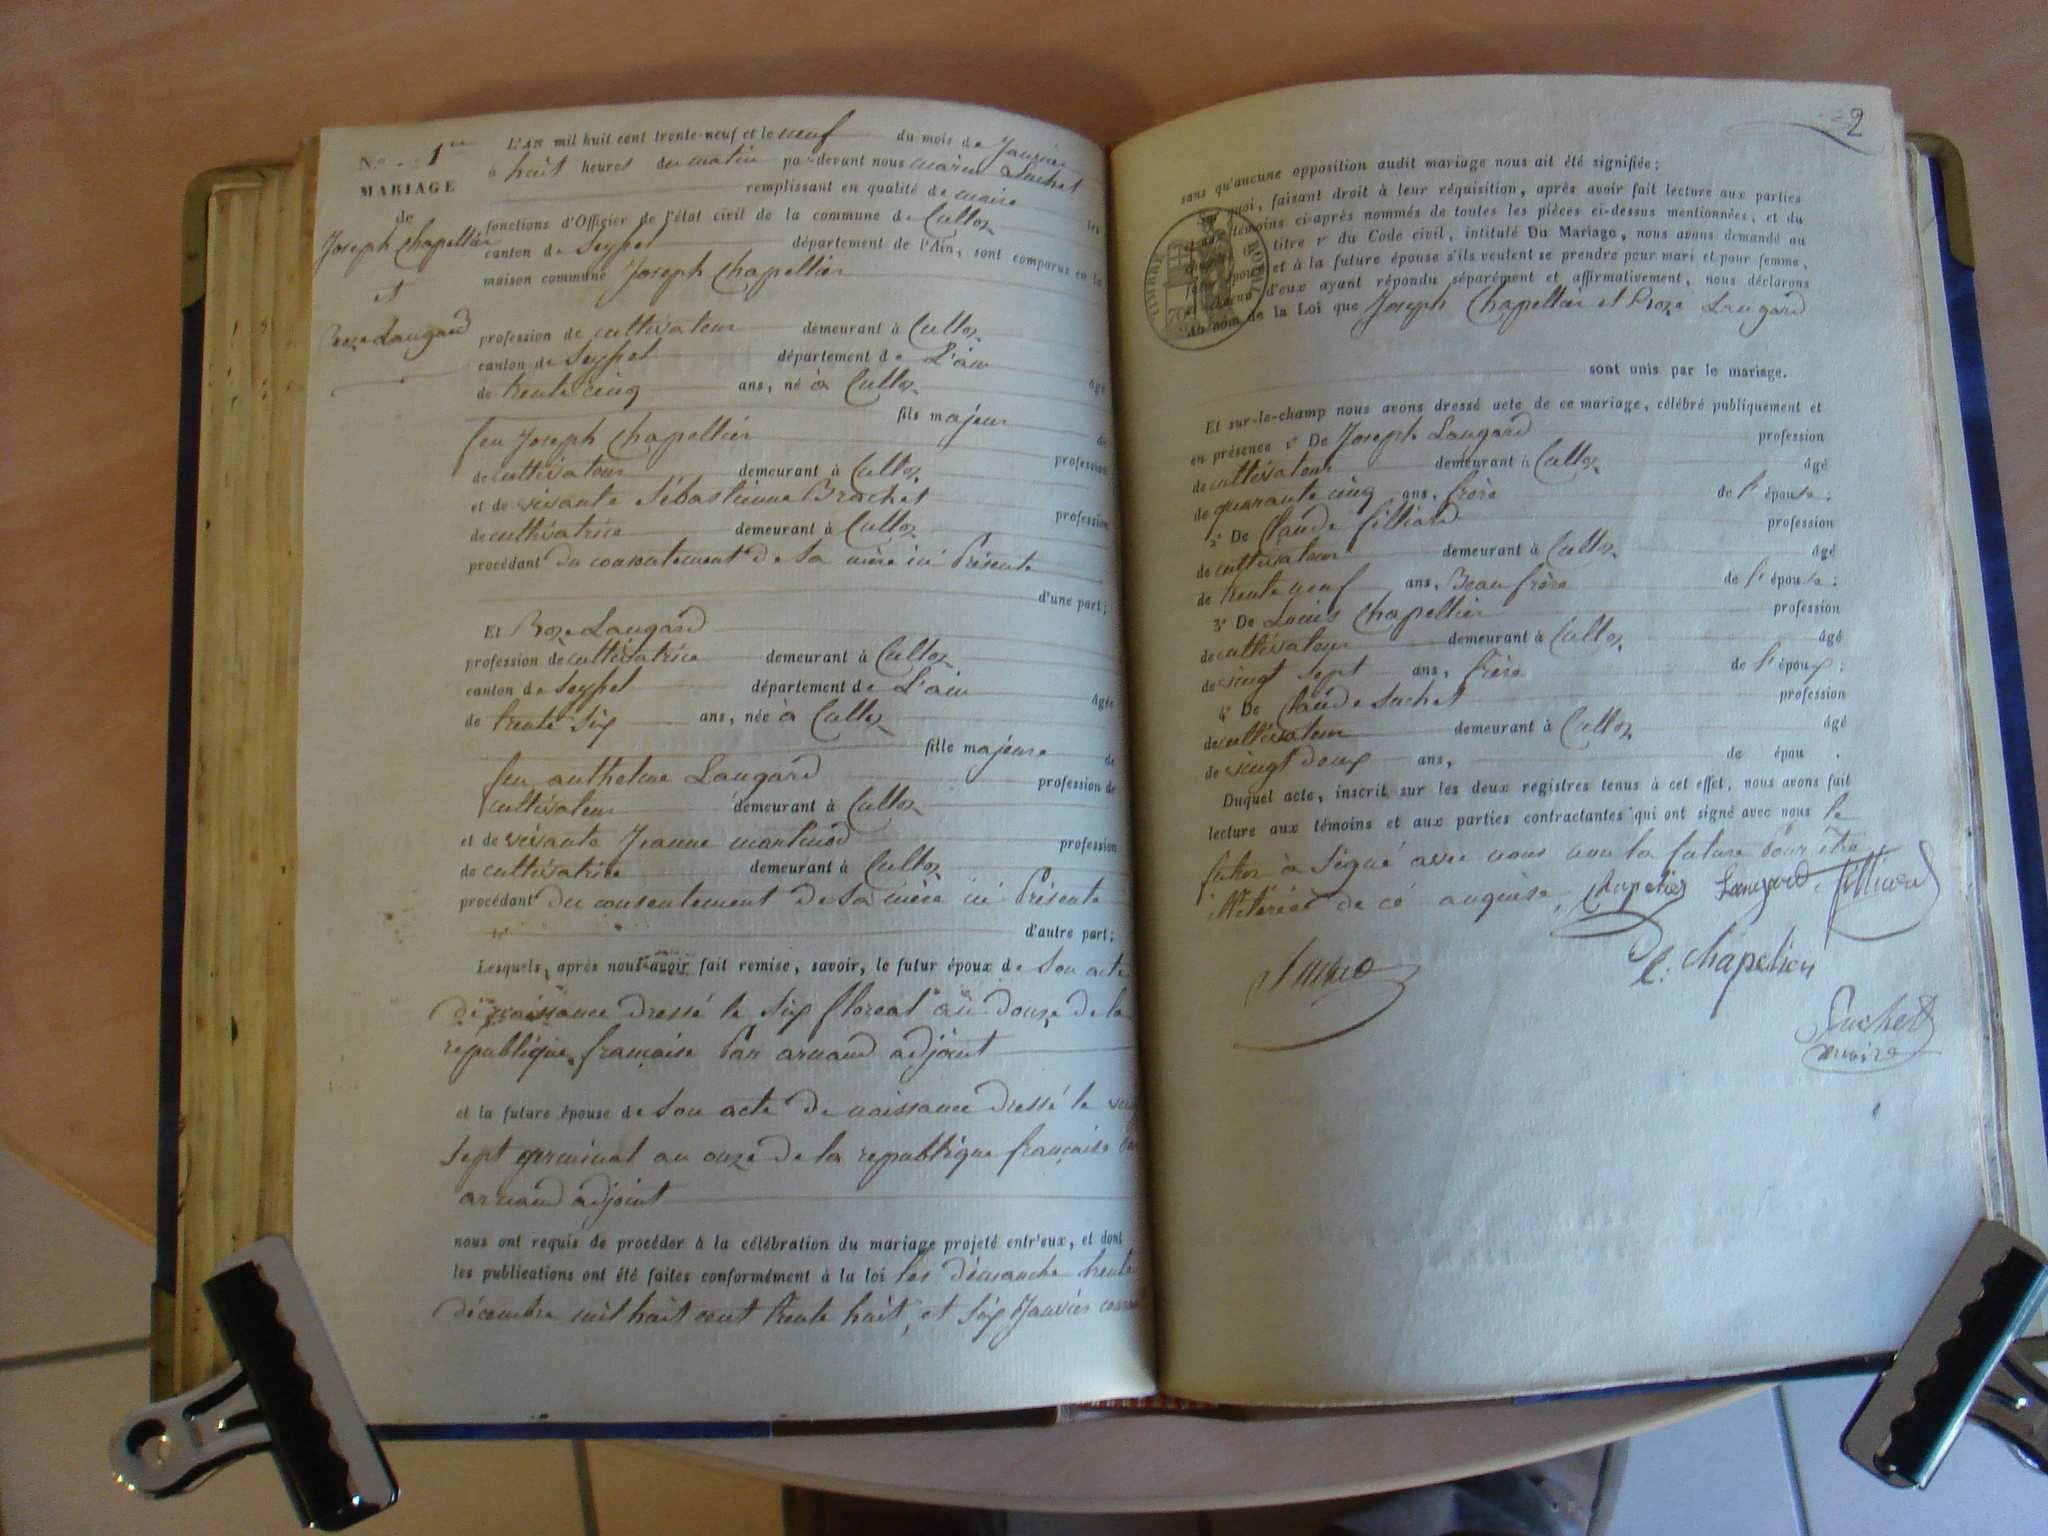 N.º 1er
MARIAGE
de
Joseph Chapellier
et
Roze Laugard
L'AN mil huit cent trente-neuf et le neuf du mois de Janvier
à huit heures du matin par-devant nous marin Suchet
remplissant en qualité de maire les
fonctions d'Officier de l'état civil de la commune de Culloz
canton de Seyssel département de l'Ain, sont comparus en la
maison commune Joseph Chapellier
profession de cultivateur demeurant à Culloz
canton de Seyssel département de L'ain
de trente cinq ans, né à Culloz âgé
fils majeur de
feu Joseph Chapellier profession
de cultivateur demeurant à Culloz
et de vivante Sébastienne Brachet profession
de cultivatrice demeurant à Culloz
procédant du consentement de sa mère ici Présente
d'une part;
Et Roze Laugard
profession de cultivatrice demeurant à Culloz
canton de Seyssel département de L'ain âgée
de trente six ans, née à Culloz
fille majeure de
feu anthelme Laugard profession de
cultivateur demeurant à Culloz
et de vivante Jeanne martinod profession
de cultivatrice demeurant à Culloz
procédant du consentement de sa mère ici Présente
d'autre part;
Lesquels, après nous avoir fait remise, savoir, le futur époux de son acte
de naissance dressé le six floreal an douze de la
republique française Par arnaud adjoint
et la future épouse de son acte de naissance dressé le vingt
sept germinal an onze de la republique française Par
arnaud adjoint
nous ont requis de procéder à la célébration du mariage projeté entr'eux, et dont
les publications ont été faites conformément à la loi les dimanche trente
décembre mil huit cent trente huit, et six Janvier courant
2
sans qu'aucune opposition audit mariage nous ait été signifiée;
Sur quoi, faisant droit à leur réquisition, après avoir fait lecture aux parties
et aux témoins ci-après nommés de toutes les pièces ci-dessus mentionnées, et du
chapitre 6 titre v du Code civil, intitulé Du Mariage, nous avons demandé au
futur époux et à la future épouse s'ils veulent se prendre pour mari et pour femme,
et chacun d'eux ayant répondu séparément et affirmativement, nous déclarons
au nom de la Loi que Joseph Chapellier et Roze Laugard
TIMBRE ROYAL
sont unis par le mariage.
Et sur-le-champ nous avons dressé acte de ce mariage, célébré publiquement et
en présence 1º De Joseph Laugard profession
de cultivateur demeurant à Culloz âgé
de quarante cinq ans, frère de l'épouse;
2º De Claude filliard profession
de cultivateur demeurant à Culloz âgé
de trente neuf ans, Beau frère de l'épouse;
3º De Louis Chapellier profession
de cultivateur demeurant à Culloz âgé
de vingt sept ans, frère de l'époux;
4º De Claude Suchet profession
de cultivateur demeurant à Culloz âgé
de vingt deux ans, de épou .
Duquel acte, inscrit sur les deux registres tenus à cet effet, nous avons fait
lecture aux témoins et aux parties contractantes qui ont signé avec nous le
futur à signé avec nous non la future Pour être
illétérée de ce enquise, Chapelier Laugard filliard
l. Chapelier
Suchet
maire